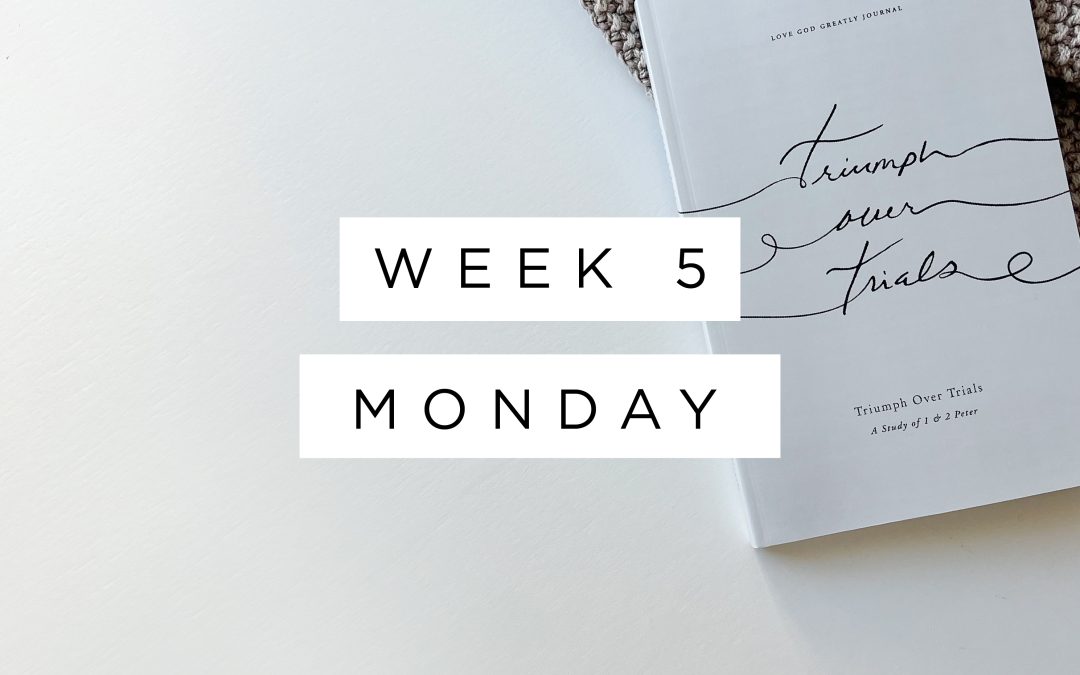 LOVE GOD GREATLY JOURNAL
Triumph
over
Trials
WEEK 5
MONDAY
Triumph Over Trials
A Study of 1 & 2 Peter